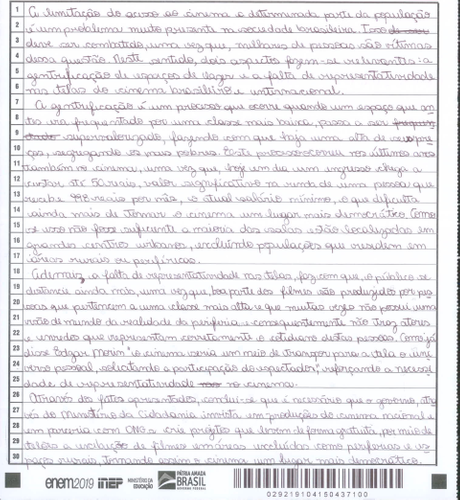 A limitação do acesso ao cinema a determinada parte da população
é um problema muito presente na sociedade brasileira. Isso
deve ser combatido, uma vez que, milhares de pessoas são vítimas
dessa questão. Neste sentido, dois aspectos fazem-se relevantes: a
gentrificação de espaços de lazer e a falta de representatividade
nas telas do cinema brasileiro e internacional.
A gentrificação é um processo que ocorre quando um espaço que an
tes era frequentado por uma classe mais baixa, passa a ser
supervalorizado, fazendo com que haja uma alta de pre
ços, segregando os mais pobres. Este processo ocorreu nos últimos anos
também no cinema, uma vez que, hoje em dia um ingresso chega a
custar até 50 reais, valor significativo na renda de uma pessoa que
recebe 998 reais por mês, o atual salário mínimo, o que dificulta
ainda mais de tornar o cinema um lugar mais democrático. Como
se isso não fosse suficiente a maioria das salas estão localizadas em
grandes centros urbanos, excluindo populações que residem em
áreas rurais ou periféricas.
Ademais, a falta de representatividade nas telas, faz com que, o público se
distancie ainda mais, uma vez que, boa parte dos filmes são produzidos por pes
soas que pertencem a uma classe mais alta e que muitas vezes não possui uma
visão de mundo da realidade da periferia e consequentemente não traz atores
e enredos que representam corretamente o cotidiano destas pessoas. Como já
disse Edgar Morin "o cinema seria um meio de transpor para a tela o univ
erso pessoal, solicitando a participação do espectador", reforçando a necessi
dade de representatividade no cinema.
Através dos fatos apresentados, conclui-se que é necessário que o governo, atra
vés do Ministério da Cidadania invista em produções do cinema nacional e
em parceria com ONGs crie projetos que levem de forma gratuita, por meio de
telões a exibição de filmes em áreas excluídas como periferias e es
paços rurais, tornando assim o cinema um lugar mais democrático.
enem2019 inep MINISTÉRIO DA EDUCAÇÃO PÁTRIA AMADA BRASIL GOVERNO FEDERAL
029219104150437100